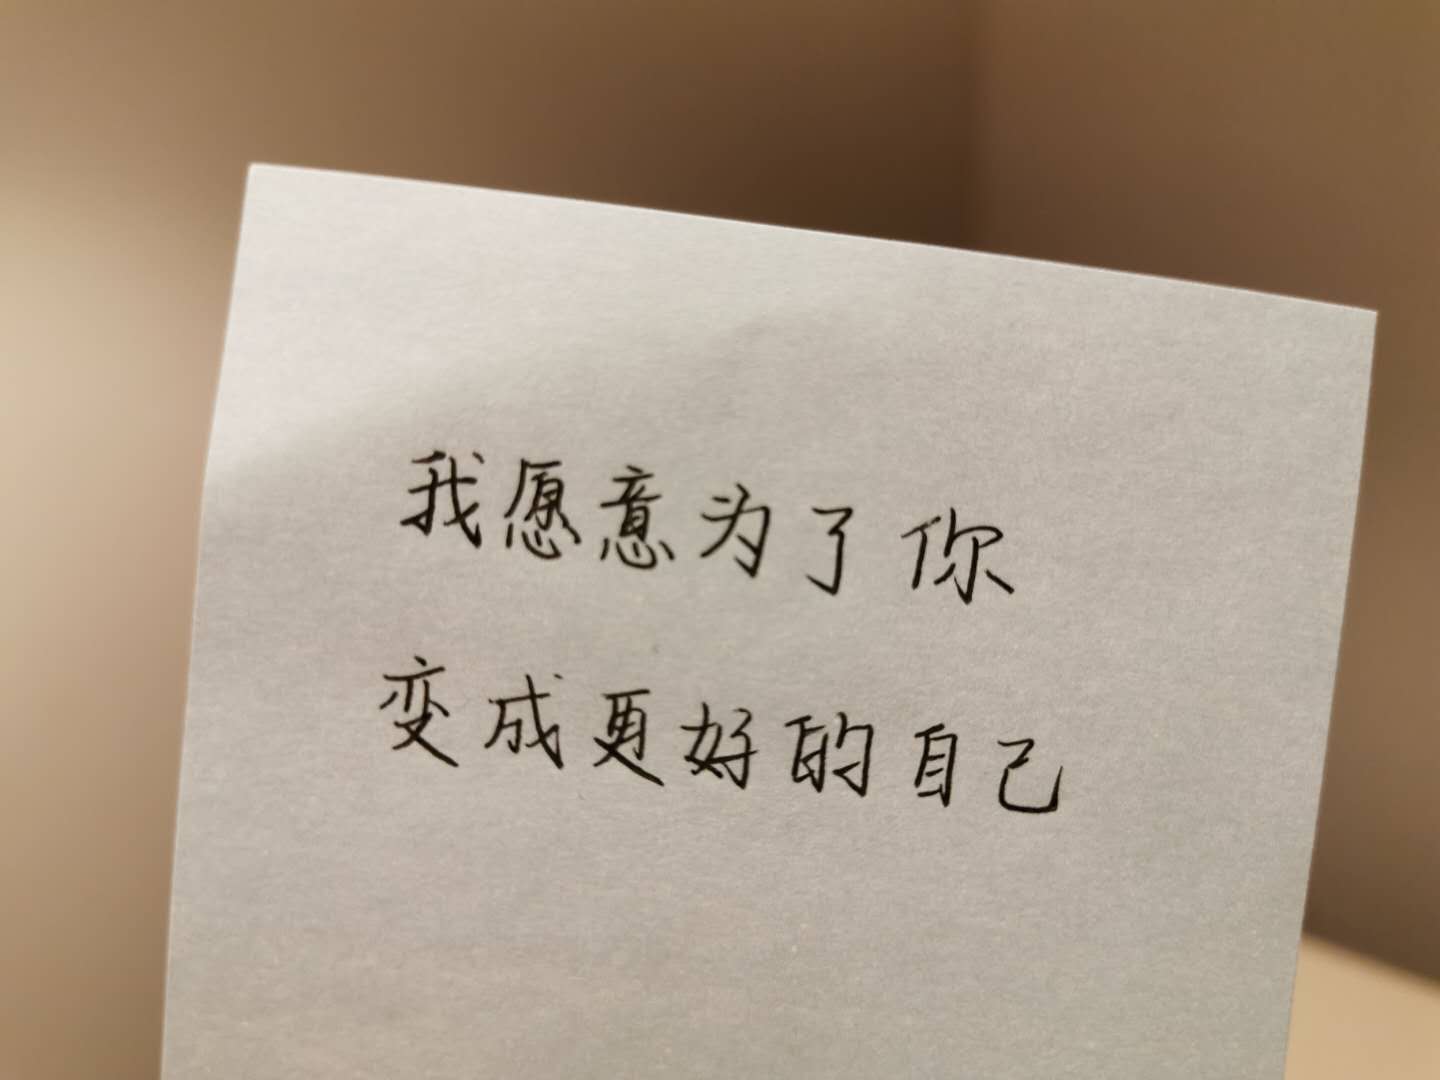 我愿意为了你
变成更好的自己